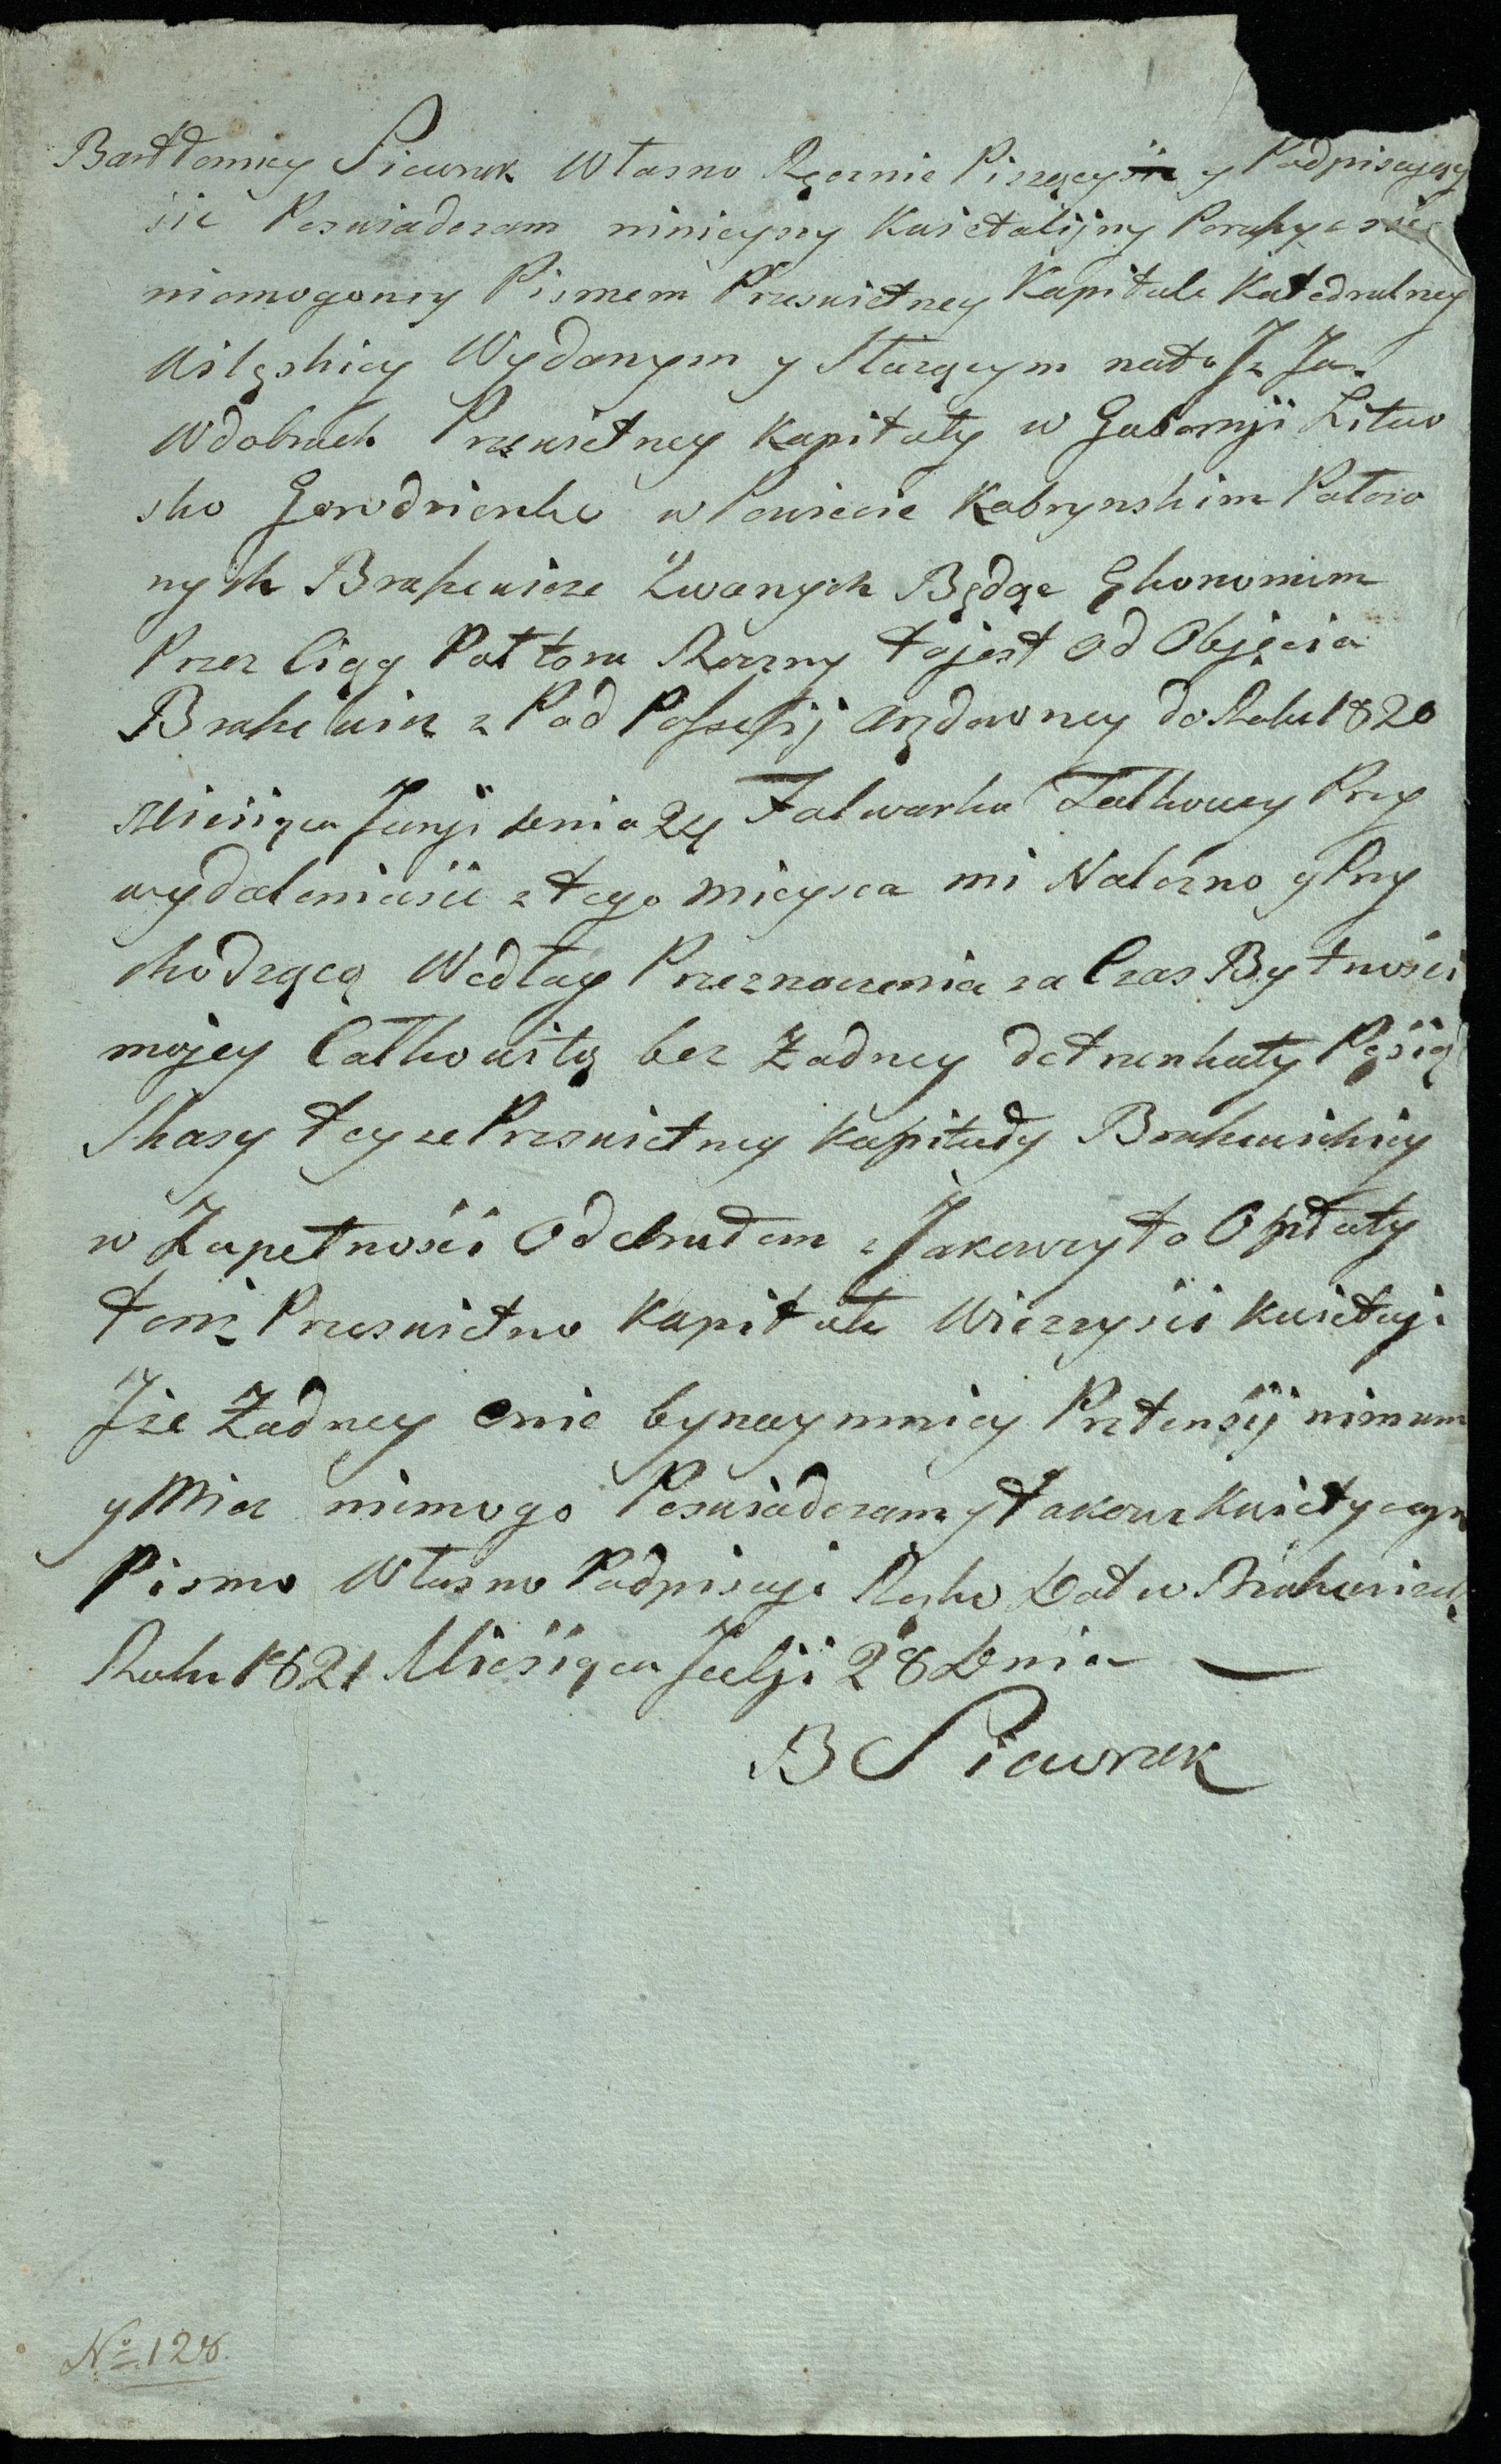 Bartłomiey Piewrak Własno Ręcznie Piszącysie y Podpisujący
sie Poswiadczam ninieyszy Kwietalijny Poruszyc sie
niemogoncy Pismem Przeswietney Kapitule Katedralney
Wilęskiey Wydanym y Słuzącym nato Iz Ja
Wdobrach Przeswietney Kapituły w Gubernji Litew
sko Grodzienko w Powiecie Kobrynskim Połozo
nych Brakiewicze Zwanych Będąc Ękonomem
Przez Ciąg Połtora Roczny tojest od Objęcia
z Pod Possessij Arędowney do Roku 1820
Miesiąca Junji Dnia 24 Falwarku Przy
wydaleniusie z tego mieysca mi Nalezno y Przy
chodzącą Według Przeznaczenia za Czas Bytnosci
mojey Całkowitą bez Zadney detrunkaty Pęsią
Skasy teyze Przeswietney Kapituły
w Zupełnosci Odebrałem z Jakowey to Opłaty
Przeswietno Kapitułe Wieczyscie Kwietuje
Jze Zadney Anie bynaymniey Pretensij nimam
y Miec niemogo Poswiadczam y takowe
Pismo Własno Podpisuje Ręko Dat w
Roku 1821 Miesiąca Julji 28 Dnia
B Piewrak
No 128.